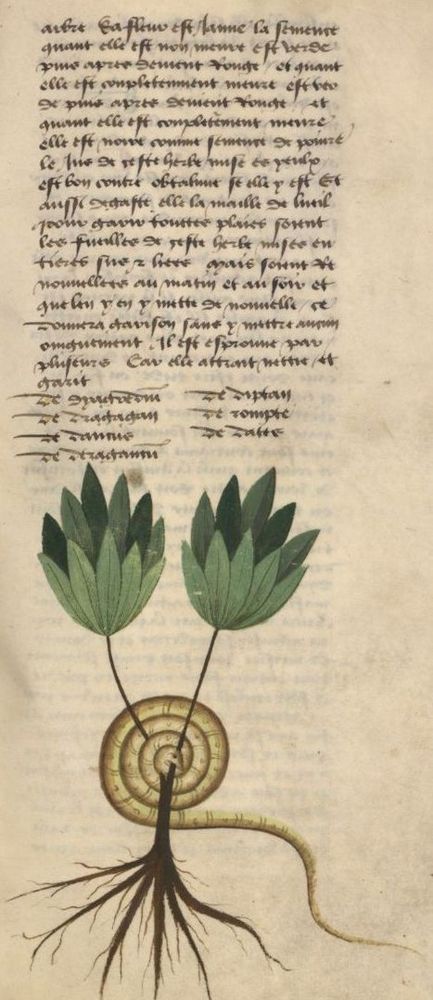 arbre Sa fleur est Janne la semence
quant elle est non meure est verde
puis apres devient Rouge et quant
elle est conpletement meure est ver
de puis apres devient Rouge et
quant elle est conpletement meure
elle est noire comme semence de poivre
le Jus de ceste herbe mise es yeulx
est bon contre se elle y est Et
aussi degaste elle la maille de lueil
pour garir touttes plaies soient
les fueilles de ceste herbe mises en
tieres sus & liees Mais soient Re
nouvellees au matin et au soir et
que len y en y mette de nouvelle ce
donnera garison sans y mettre aucun
oinguement Il est esprouve par
pluseurs Car elle attrait nettie et
garit
De De diptan
De dragagan De rompte
De daucus De dates
De